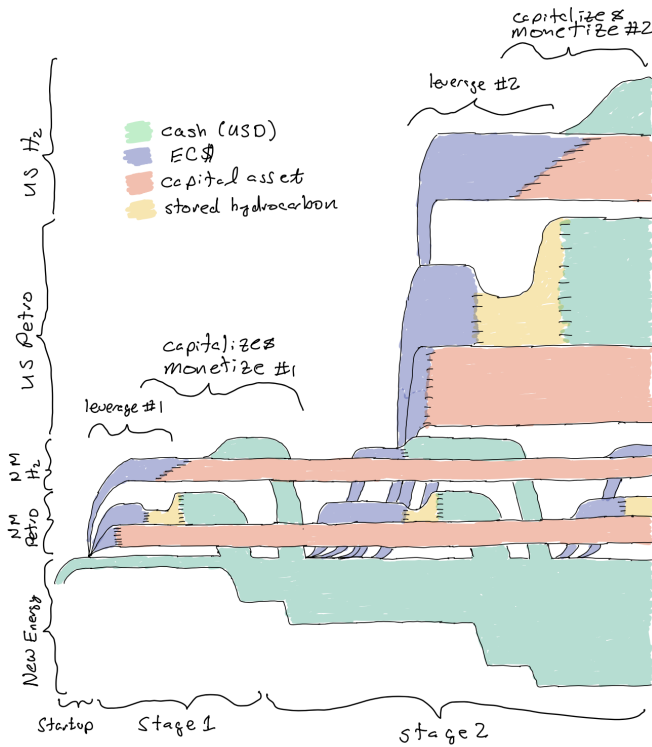 capitalize $
monetize #2
leverage #2
cash (USD)
EC$
capital asset
stored hydrocarbon
US H2
US Petro
capitalize $
monetize #1
leverage #1
NM
H2
NM
Petro
New Energy
Startup
Stage 1
Stage 2